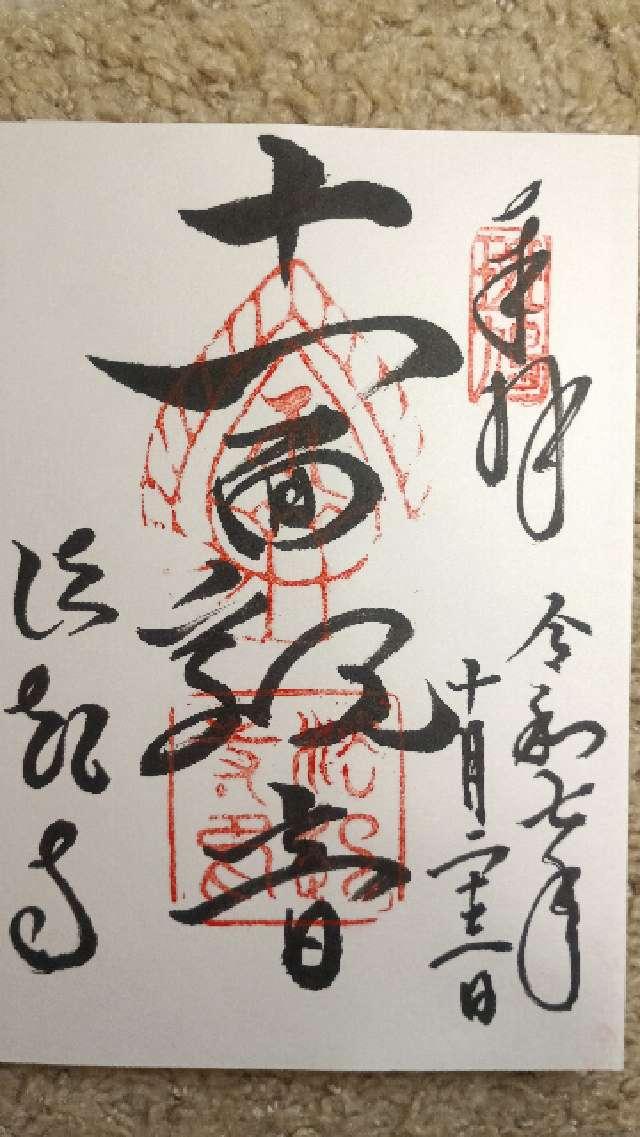 奉拝
令和七年
十月二十二日
十一面観音
法起寺